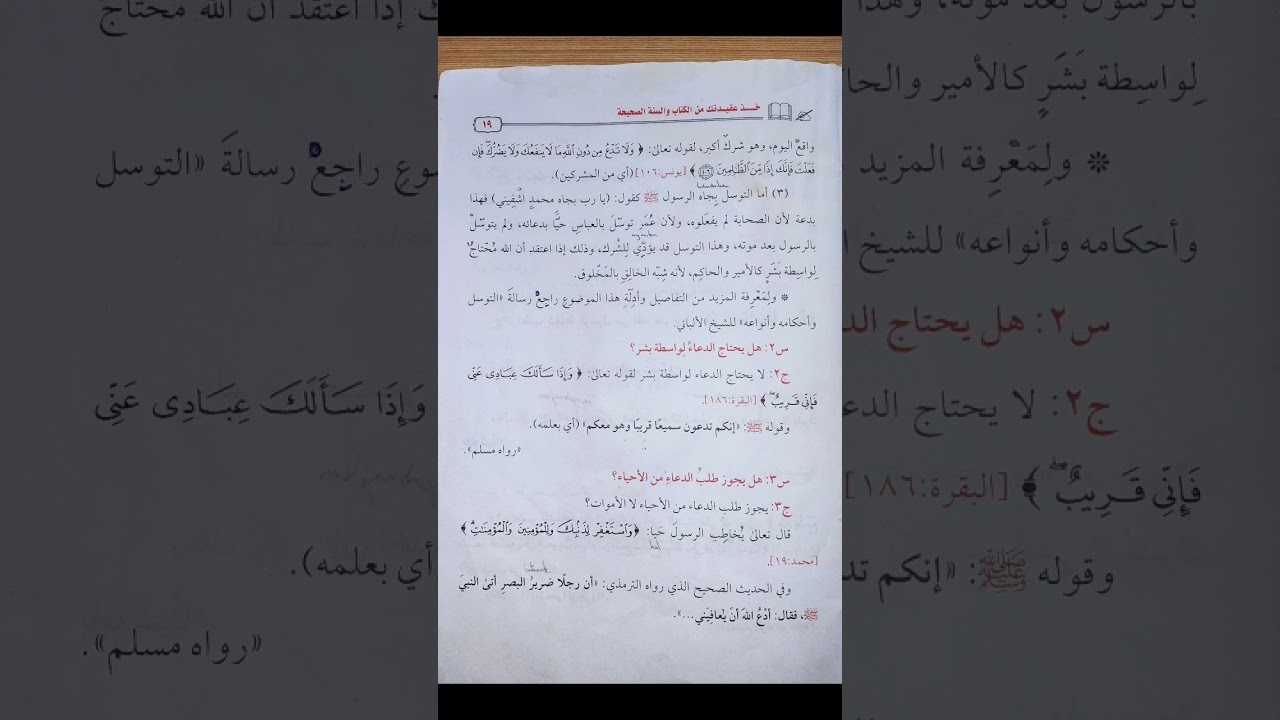 خــذ عقيـدتك من الكتاب والسنة الصحيحة
١٩
واقعٌ اليوم، وهو شركٌ أكبر، لقوله تعالىٰ: ﴿ وَلَا تَدْعُ مِن دُونِ ٱللَّهِ مَا لَا يَنفَعُكَ وَلَا يَضُرُّكَ ۖ فَإِن
فَعَلْتَ فَإِنَّكَ إِذًا مِّنَ ٱلظَّـٰلِمِينَ ١٠٦ ﴾ [يونس:١٠٦] (أي من المشركين).
(٣) أما التوسل بِجاه الرسول ﷺ كقول: (يا رب بجاه محمدٍ اشْفِيني) فهذا
بدعة لأن الصحابة لم يفعَلوه، ولأن عُمَر توسّلَ بالعباسِ حيًّا بدعائه، ولم يتوسّلْ
بالرسول بعد موته، وهذا التوسل قد يؤدِّي لِلشرك، وذلك إذا اعتقد أن الله مُحْتاجٌ
لِواسِطة بَشَرٍ كالأمير والحاكِم، لأنه شبَّه الخالِق بالمَخْلوق.
* ولِمَعْرِفة المزيد من التفاصيل وأدِلَّةِ هذا الموضوعِ راجِعْ رسالةَ «التوسل
وأحكامه وأنواعه» للشيخ الألباني.
س٢: هل يحتاج الدعاءُ لِواسطة بشر؟
ج٢: لا يحتاج الدعاء لواسطة بشر لقوله تعالىٰ: ﴿ وَإِذَا سَأَلَكَ عِبَادِى عَنِّى
فَإِنِّى قَـرِيبٌ ۖ ﴾ [البقرة:١٨٦].
وقوله ﷺ: «إنكم تدعون سميعًا قريبًا وهو معكم» (أي بعلمه).
«رواه مسلم».
س٣: هل يجوز طلبُ الدعاءِ من الأحياء؟
ج٣: يجوز طلب الدعاء من الأحياء لا الأموات؟
قال تعالىٰ يُخاطِب الرسولَ حَيا: ﴿وَٱسْتَغْفِرْ لِذَنۢبِكَ وَلِلْمُؤْمِنِينَ وَٱلْمُؤْمِنَـٰتِ ﴾
[محمد:١٩].
وفي الحديث الصحيح الذي رواه الترمذي: «أن رجلًا ضريرُ البصرِ أتىٰ النبيَ
ﷺ، فقال: أدْعُ اللهَ أنْ يُعافيَني...».